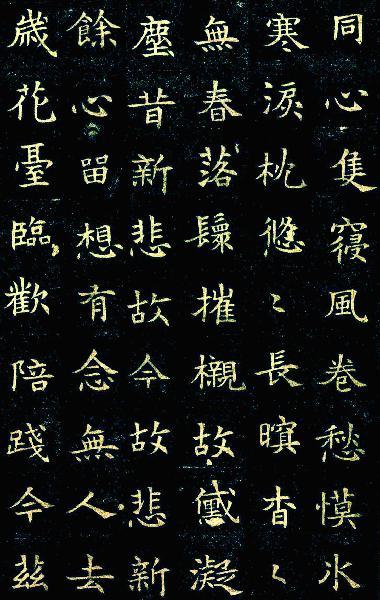 同心隻寢風卷愁幙氷
寒淚枕悠〻長暝杳〻
無春落鬟摧櫬故黛凝
塵昔新悲故今故悲新
餘心留想有念無人去
歲花臺臨歡陪踐今茲